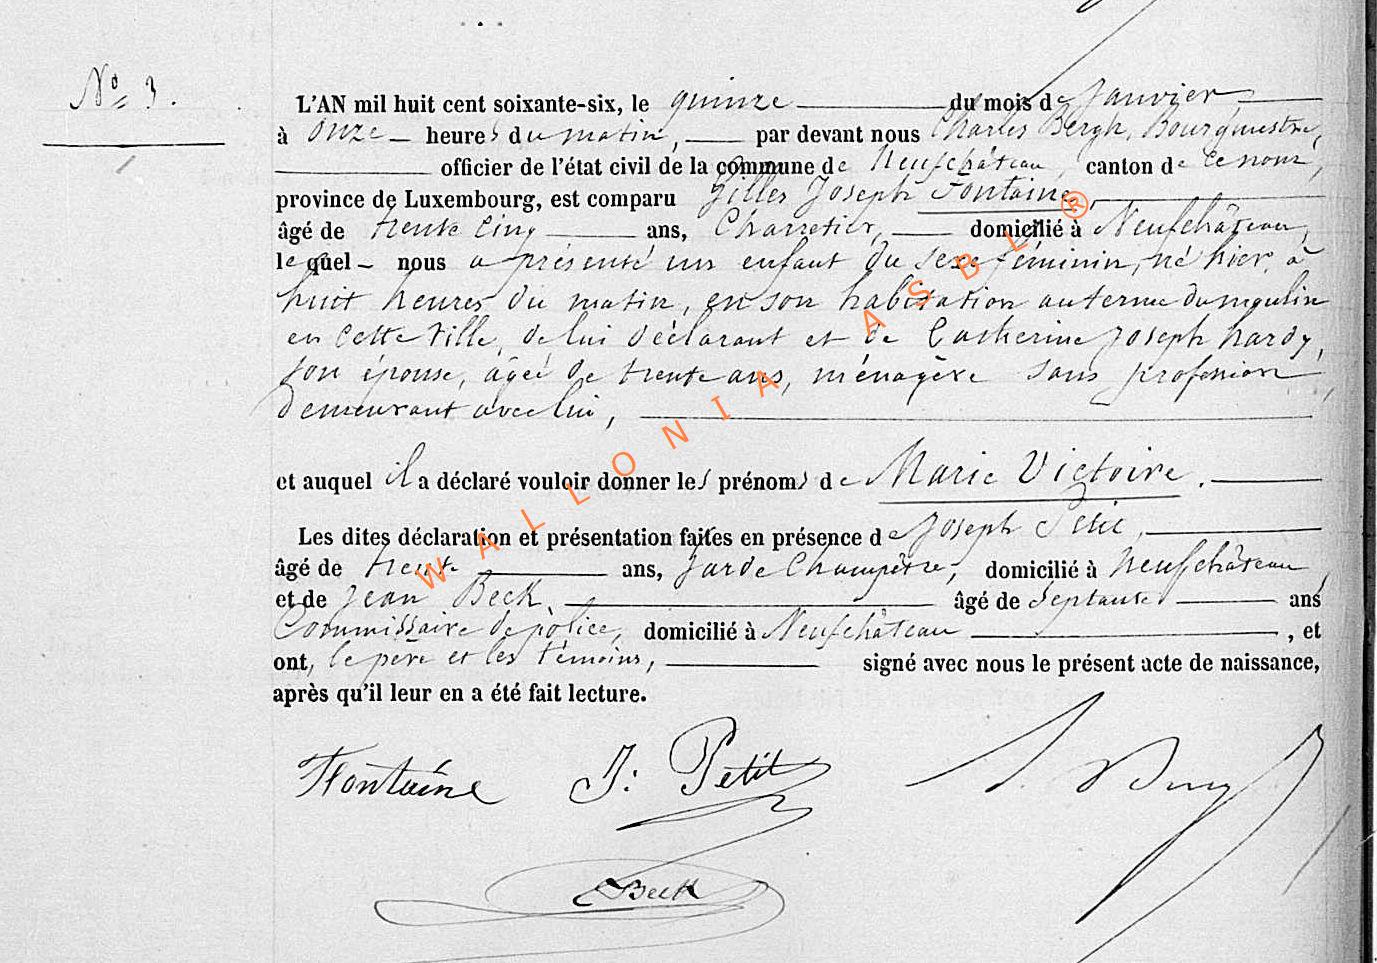 N° 3.
L'AN mil huit cent soixante-six, le quinze du mois de Janvier
à onze heures du matin, par devant nous Charles Bergh, Bourgmestre,
officier de l'état civil de la commune de Neufchâteau, canton de ce nom,
province de Luxembourg, est comparu Gilles Joseph Fontaine,
âgé de trente cinq ans, Charretier, domicilié à Neufchâteau,
lequel nous a présenté un enfant du sexe féminin, né hier, à
huit heures du matin, en son habitation au terme du moulin
en cette ville, de lui déclarant et de Catherine Joseph hardy,
son épouse, âgée de trente ans, ménagère sans profession,
demeurant avec lui,
et auquel il a déclaré vouloir donner les prénoms de Marie Victoire.
Les dites déclaration et présentation faites en présence de Joseph Petit,
âgé de trente ans, garde Champêtre, domicilié à Neufchâteau,
et de Jean Beck, âgé de septante ans
Commissaire de police, domicilié à Neufchâteau, et
ont, le père et les témoins, signé avec nous le présent acte de naissance,
après qu'il leur en a été fait lecture.
Fontaine J: Petit
Beck
WALLONIA ASBL ®